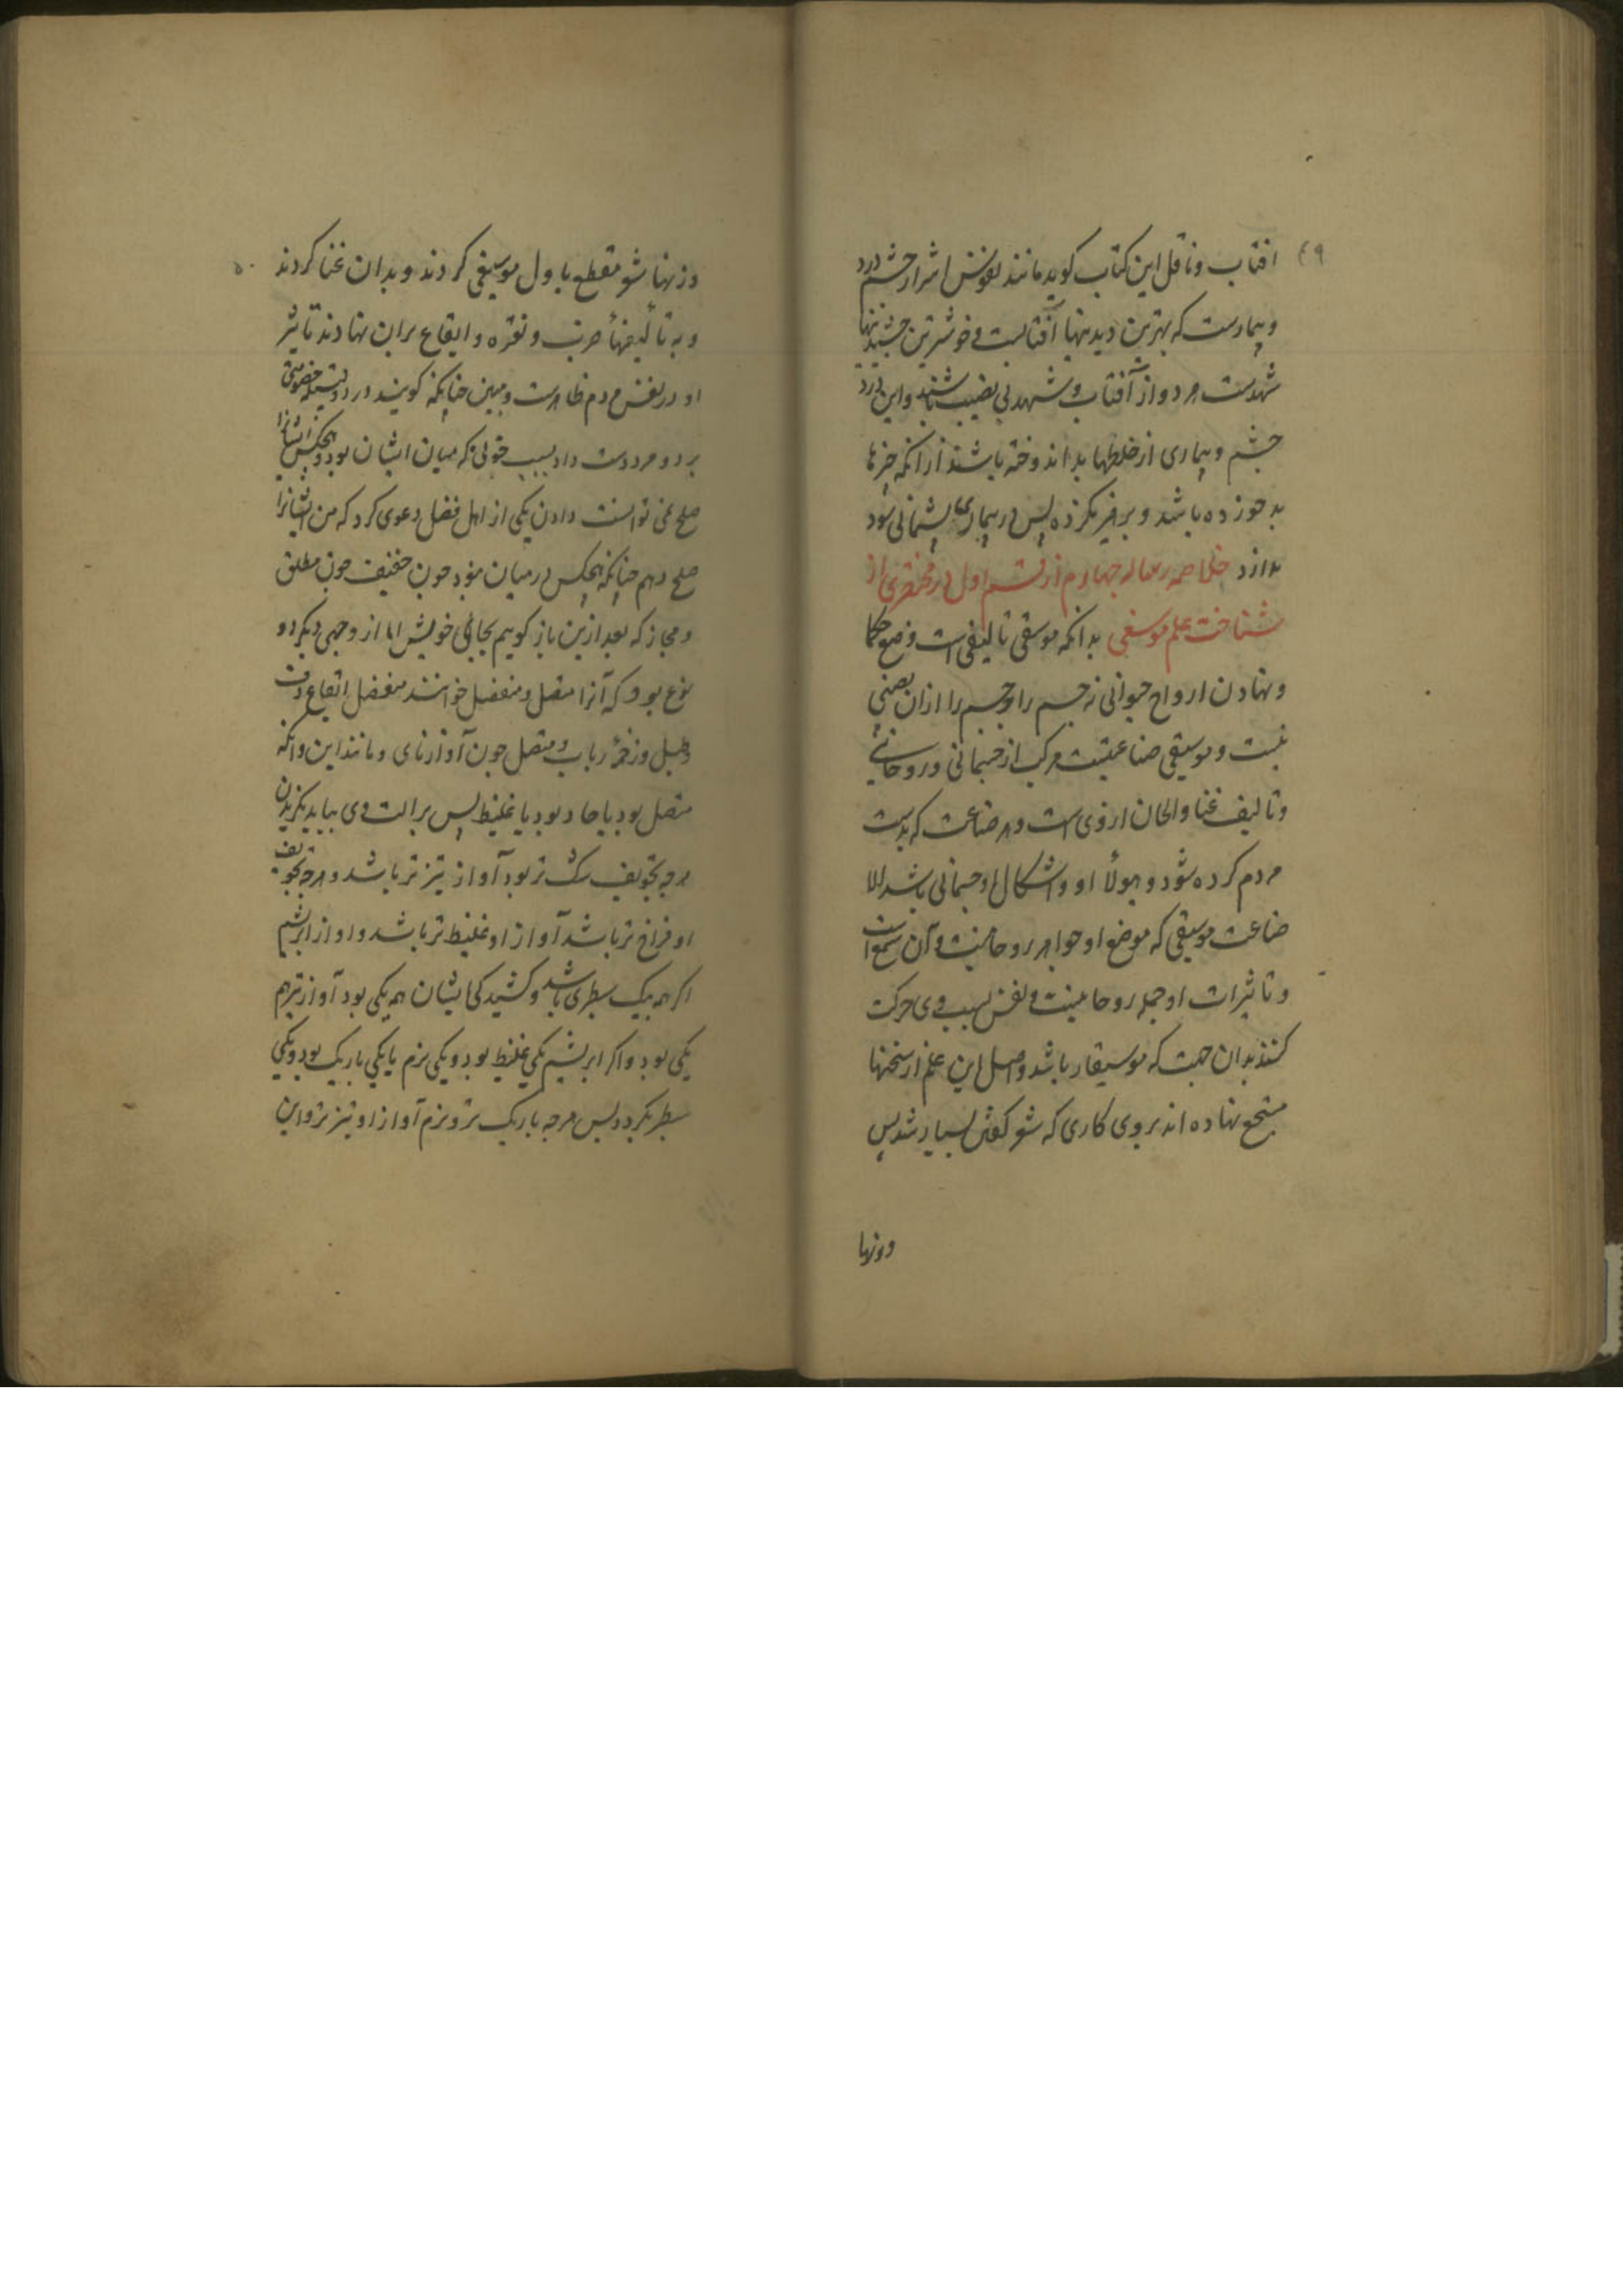 ۴۹
افتاب و ناقل این کتاب کوید مانند نفوس اشرار چشم درد
و بیمارست که بهترین دیدنیها آفتابست و خوشترین چشیدنیها
شهدست هر دو از آفتاب و شهد بی نصیب باشند و این درد
چشم و بیماری از خلطهاء بد اندوخته باشند از انکه چیزها
بد خورده باشد و بر هیز نکرده پس در بیماری پشیمانی سود
ندارد خلاصه رساله جهارم از قسم اول در مختصری از
شناخت علم موسیقی بدانکه موسیقی تالیفی است وضع حکما
و نهادن ارواح حیوانی نه جسم را و جسم را ازان نصیبی
نیست و موسیقی صناعتیست مرکب از جسمانی و روحانی
و تالیف غنا و الحان از وی است و هر صناعت که بدست
مردم کرده شود و هیولاء او و اشکال او جسمانی باشد الا
صناعت موسیقی که موضع او جواهر روحانیت و آن سمع است
و تاثیرات او جمله روحانیت و نفس بسبب وی حرکت
کنند بدان جهت که موسیقار باشد و اصل این علم از سخنها
مسجع نهاده اند بروی کاری که شعر کفتن بسیار شد پس
ووزنها
۵۰
وزنهاء شعر مقطع باول موسیقی کردند و بدان غنا کردند
و به تألیفهاء ضرب و نقره و ایقاع بران نهادند تاثیر
او در نفس مردم ظاهرست و مبین چنانکه کویند در دو قبیله خصومتی
برد و مردست داد بسبب خونی که میان ایشان بود و هیچکس ایشانرا
صلح نمی توانست دادن یکی از اهل فضل دعوی کرد که من ایشانرا
صلح دهم چنانکه هیچکس در میان نبود چون خفیف چون مطلق
و مجاز که بعد ازین باز کوییم بجای خویش اما از وجهی دیکر دو
نوع بود که آنرا متصل و منفصل خوانند منفصل ایقاع دف
و طبل و زخمهٔ رباب و متصل چون آواز نای و مانند این و انکه
متصل بود یا حاد بود یا غلیظ پس بر الت وی بباید نکریدن
هرچه تجویف تنک تر بود آواز تیزتر باشد و هرچه تجویف
او فراخ تر باشد آواز او غلیظ تر باشد و اواز ابریشم
اکر همه بیک سطبری باشد و کشیدکی ایشان همه یکی بود آواز نیز هم
یکی بود و اکر ابریشم یکی غلیظ بود و یکی نرم یا یکی باریک بود و یکی
سطبر بکردد پس هرچه باریک تر و نرم آواز او تیزتر و این